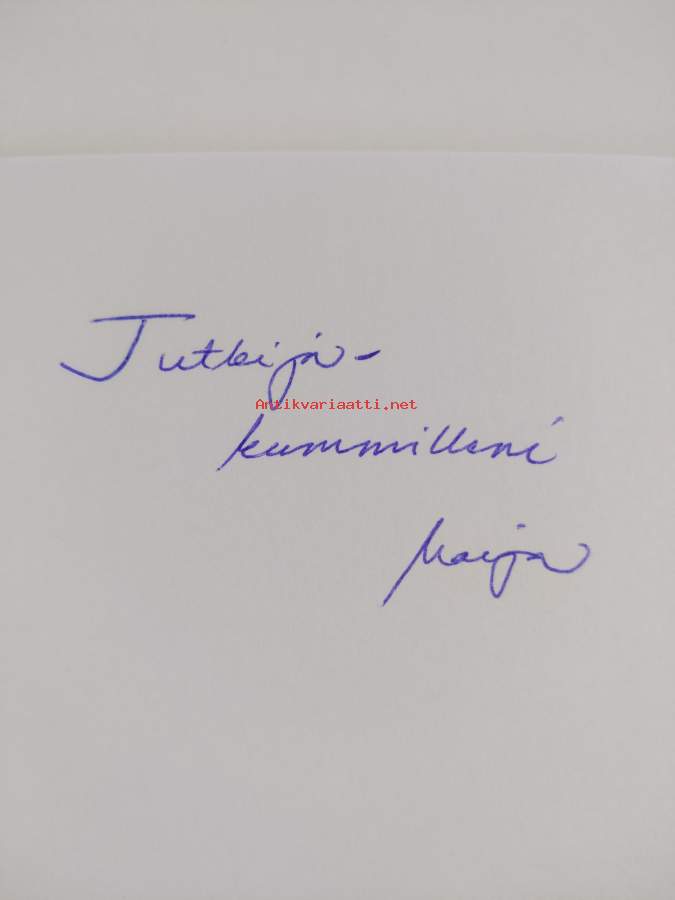 Tutkija-
Antikvariaatti.net
kummilleni
Maija